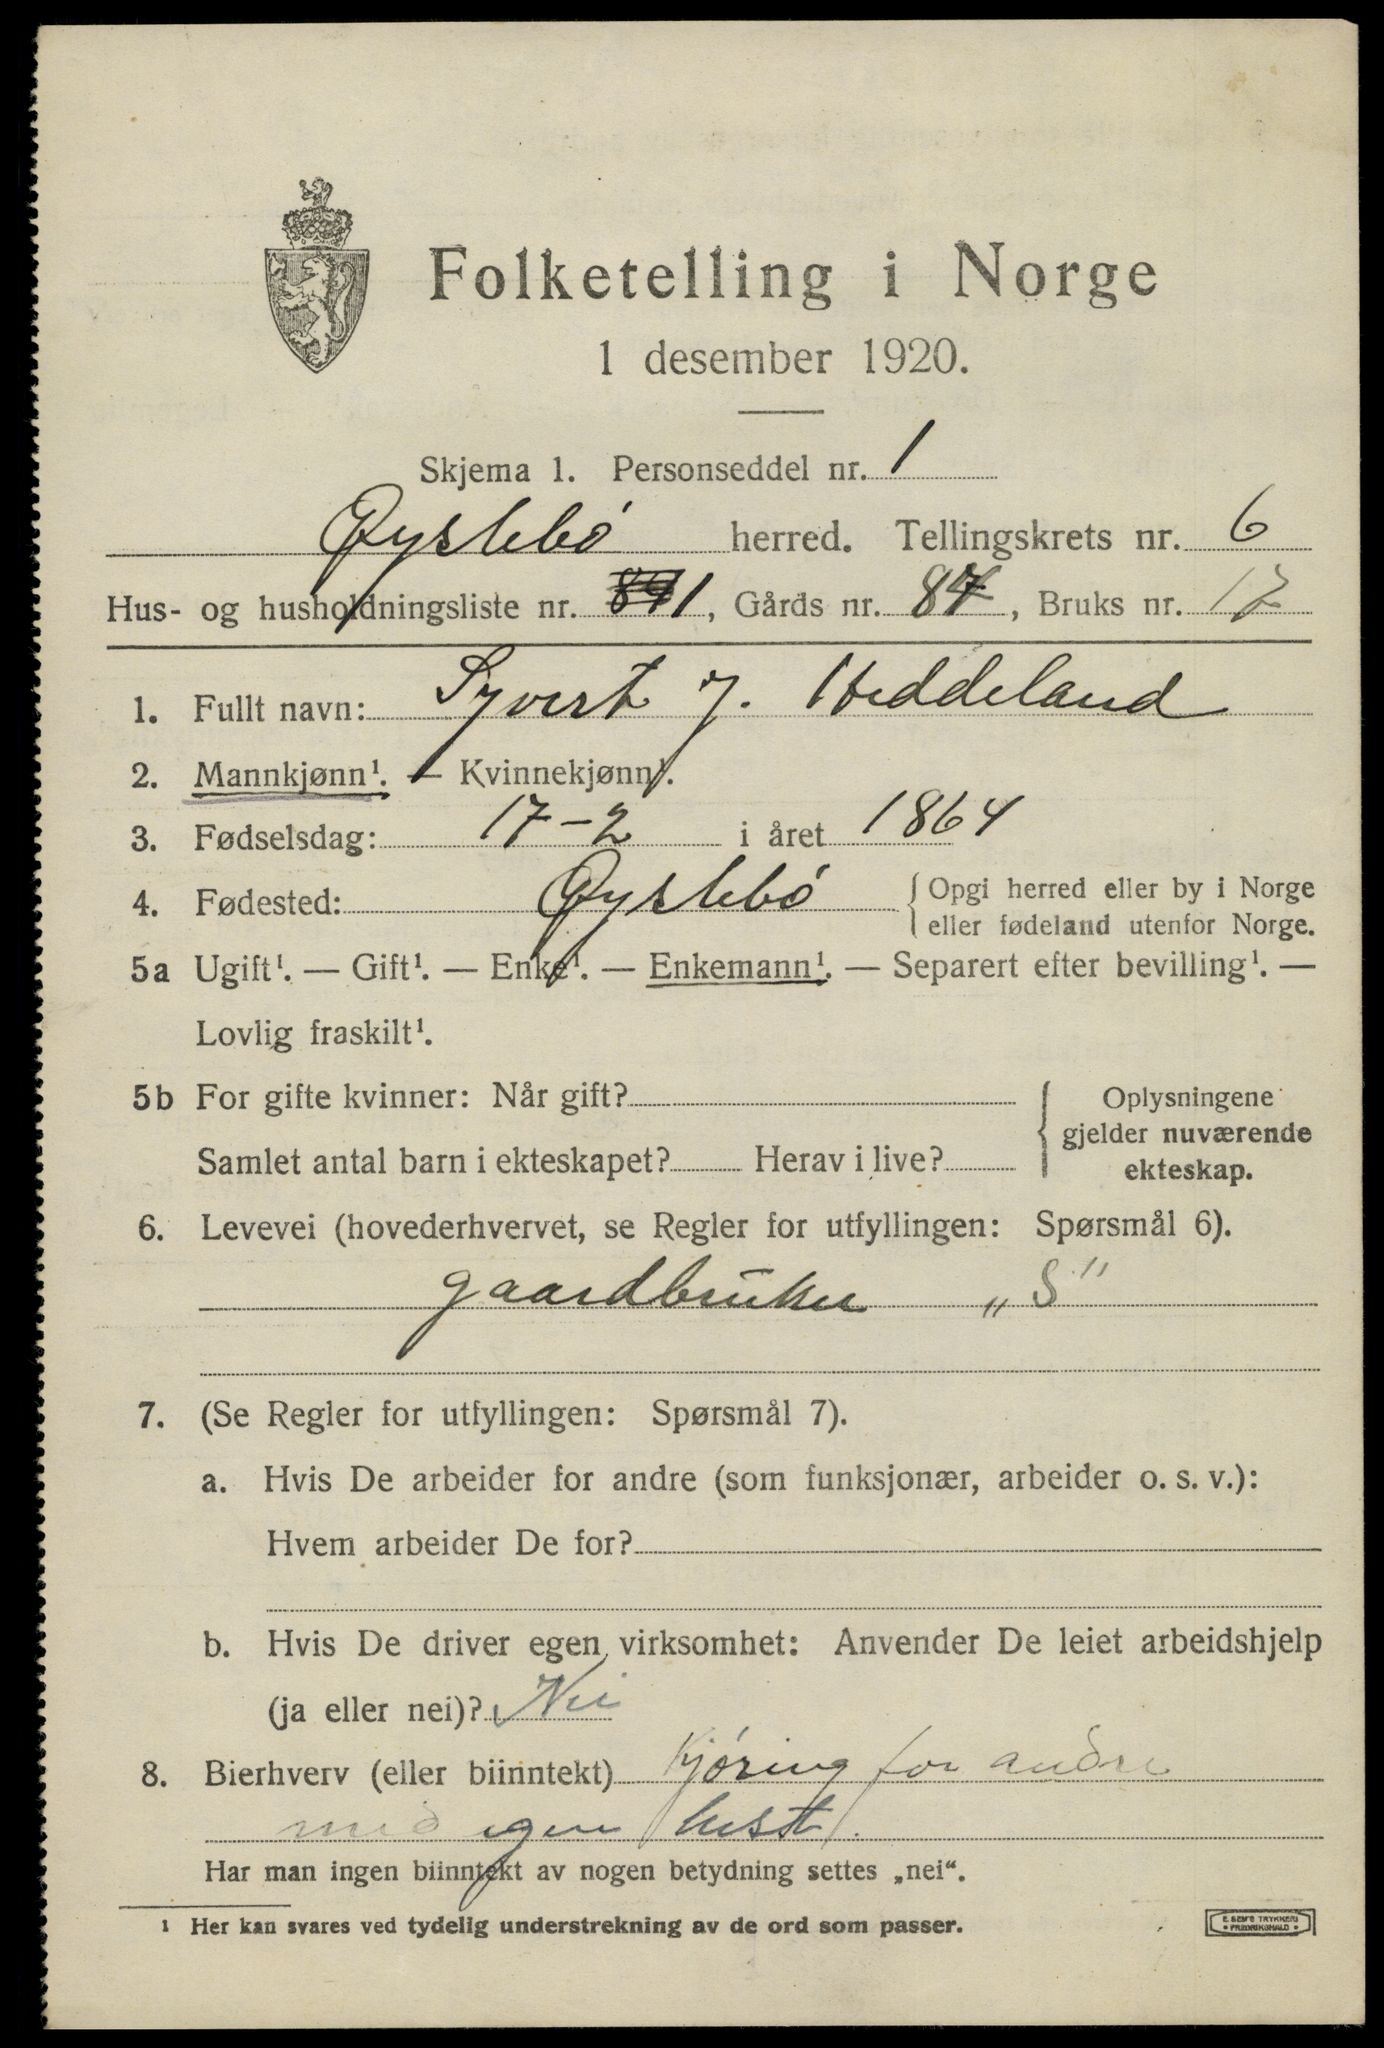 Folketelling i Norge
1 desember 1920.
Skjema 1. Personseddel nr. 1
Øyslebö herred. Tellingskrets nr. 6
Hus- og husholdningsliste nr. 1, Gårds nr. 87, Bruks nr. 12
1. Fullt navn: Syvert J. Heddeland
2. Mannkjønn¹. — Kvinnekjønn¹.
3. Fødselsdag: 17-2 i året 1864
4. Fødested: Øyslebö { Opgi herred eller by i Norge
eller fødeland utenfor Norge.
5a Ugift¹. — Gift¹. — Enke¹. — Enkemann¹. — Separert efter bevilling¹. —
Lovlig fraskilt¹.
5b For gifte kvinner: Når gift?
Samlet antal barn i ekteskapet? Herav i live?
{ Oplysningene
gjelder nuværende
ekteskap.
6. Levevei (hovederhvervet, se Regler for utfyllingen: Spørsmål 6).
gaardbruker „S"
7. (Se Regler for utfyllingen: Spørsmål 7).
a. Hvis De arbeider for andre (som funksjonær, arbeider o. s. v.):
Hvem arbeider De for?
b. Hvis De driver egen virksomhet: Anvender De leiet arbeidshjelp
(ja eller nei)? Nei
8. Bierhverv (eller biinntekt) Kjöring for andre
med egen hest.
Har man ingen biinntekt av nogen betydning settes „nei“.
¹ Her kan svares ved tydelig understrekning av de ord som passer.
E. SEM'S TRYKKERI
• FREDRIKSHALD •